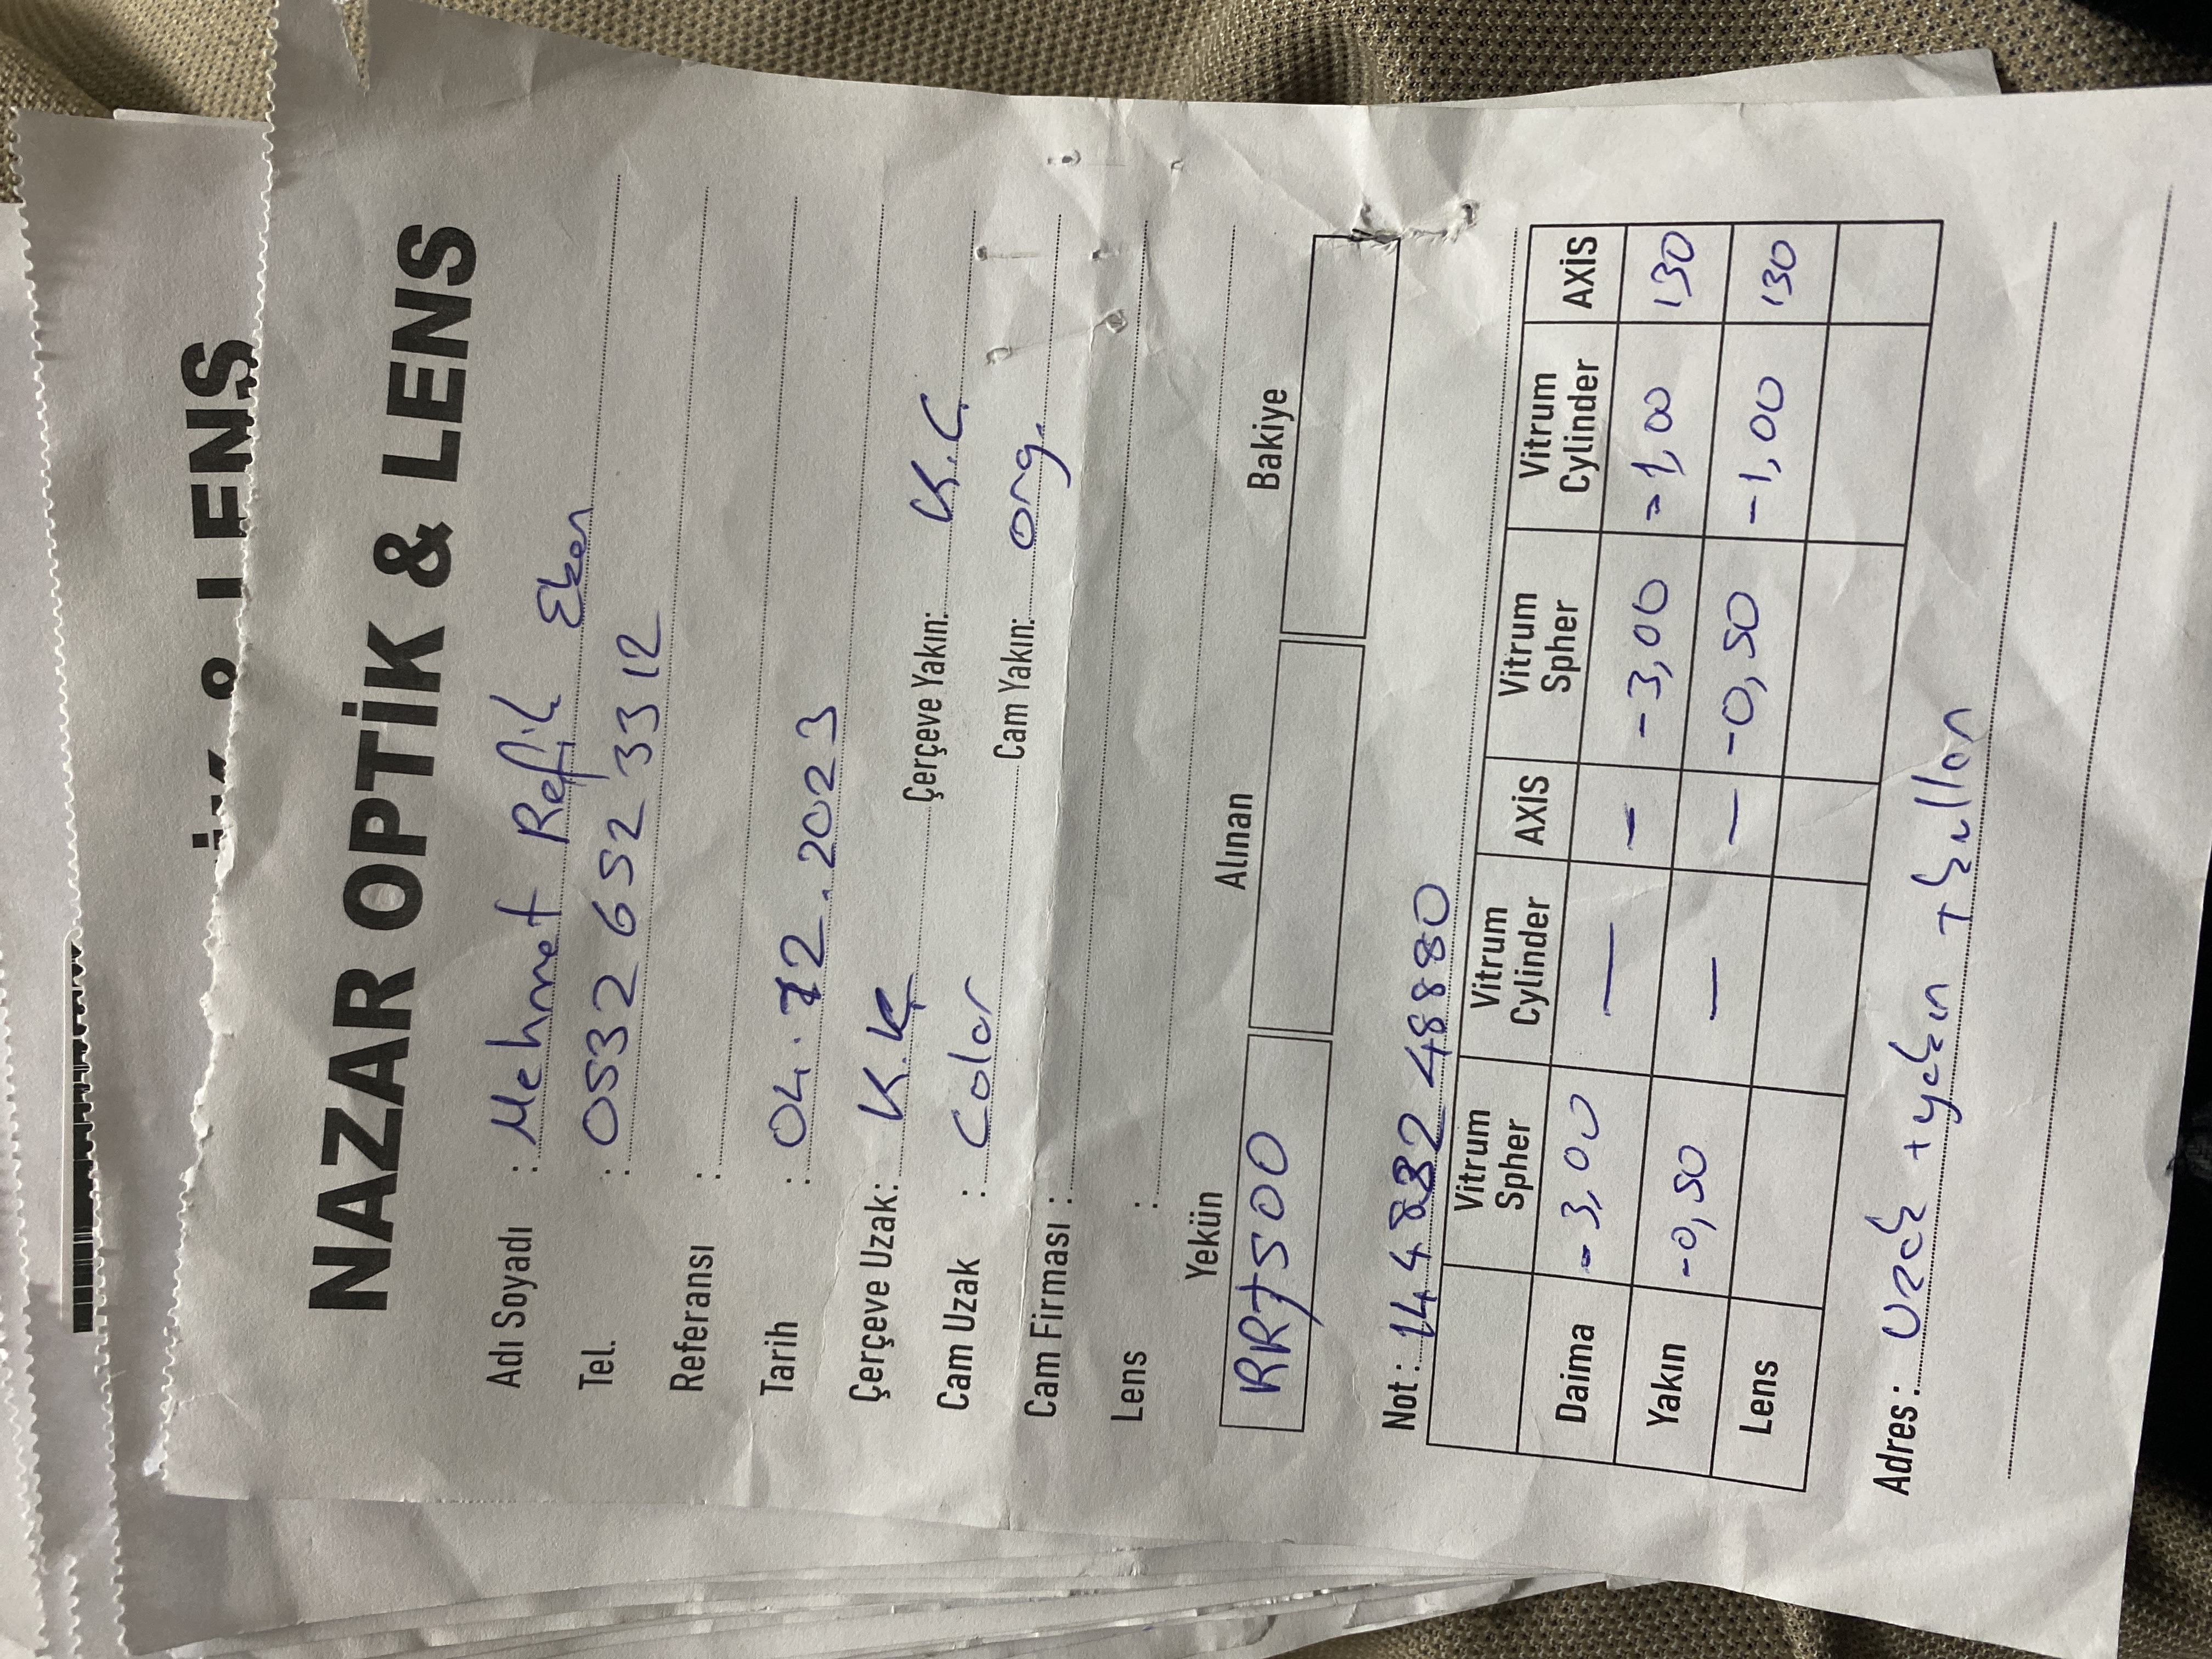 & LENS
NAZAR OPTİK & LENS
Adı Soyadı : Mehmet Refik Eken
Tel. : 0532 652 33 12
Referansı :
Tarih : 04.12.2023
Çerçeve Uzak: K.Ç Çerçeve Yakın: K.Ç.
Cam Uzak : Color Cam Yakın: org.
Cam Firması :
Lens :
Yekün Alınan Bakiye
RR7500
Not : 144832 48880
Vitrum Spher Vitrum Cylinder AXİS Vitrum Spher Vitrum Cylinder AXİS
Daima -3,00 — — -3,00 -1,00 130
Yakın -0,50 — — -0,50 -1,00 130
Lens
Adres : Uzak +yakın +kullan